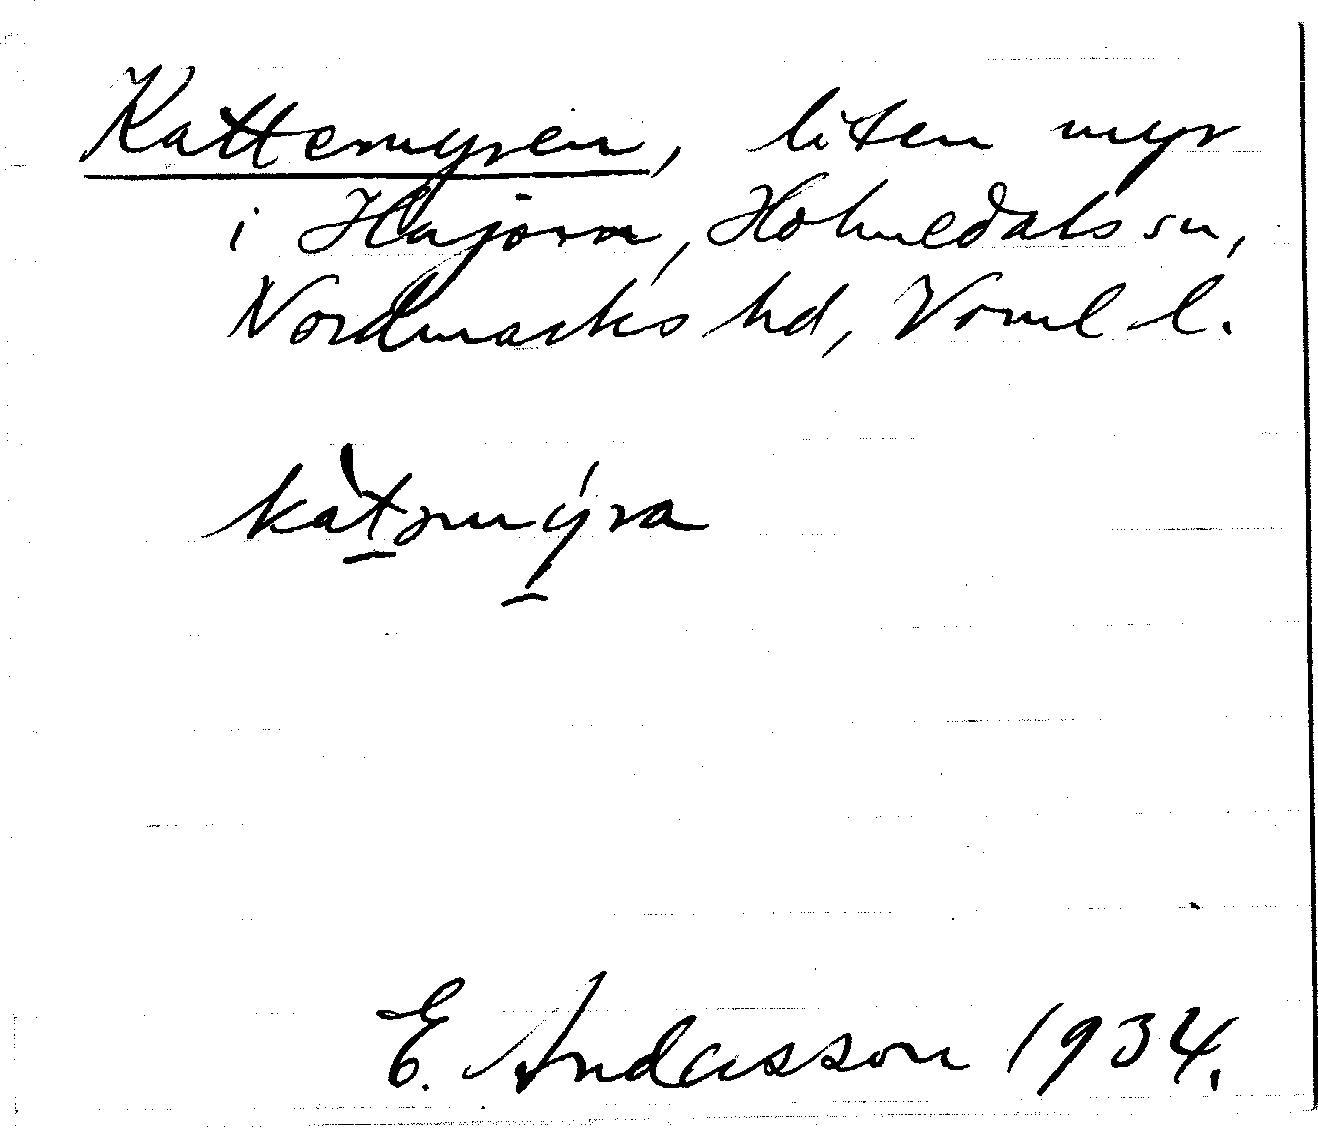 Kattemyren, liten myr
i Håjorn, Holmedals sn,
Nordmarks hd, Vrml l.
kàtəmýra
E. Andersson 1934.